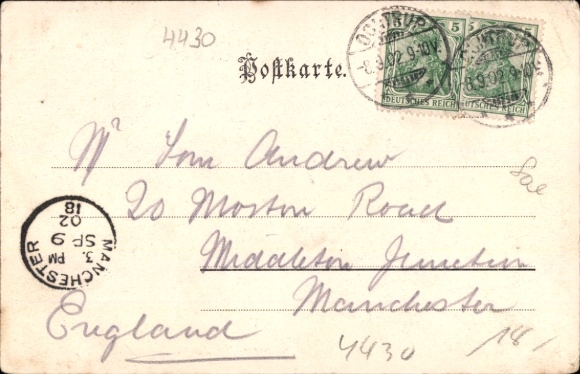 4430
Postkarte.
5
OCHTRUP
8.9.02.9-10V.
DEUTSCHES REICH
5
OCHTRUP
8.9.02.9-10V.
DEUTSCHES REICH
Mr Tom Andrew
20 Moston Road
Middleton Junction
Manchester
England
MANCHESTER
3. PM
SP 9
02
18
4430
18